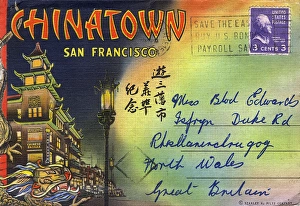 CHINATOWN
SAN FRANCISCO
SAVE THE EA
BUY U.S. BON
PAYROLL SAV
3 CENTS 3
遊三藩市
華埠
紀念
Miss Blod Edwards
Isfryn Duke Rd
Rhosllanerchrugog
North Wales
Great Britain